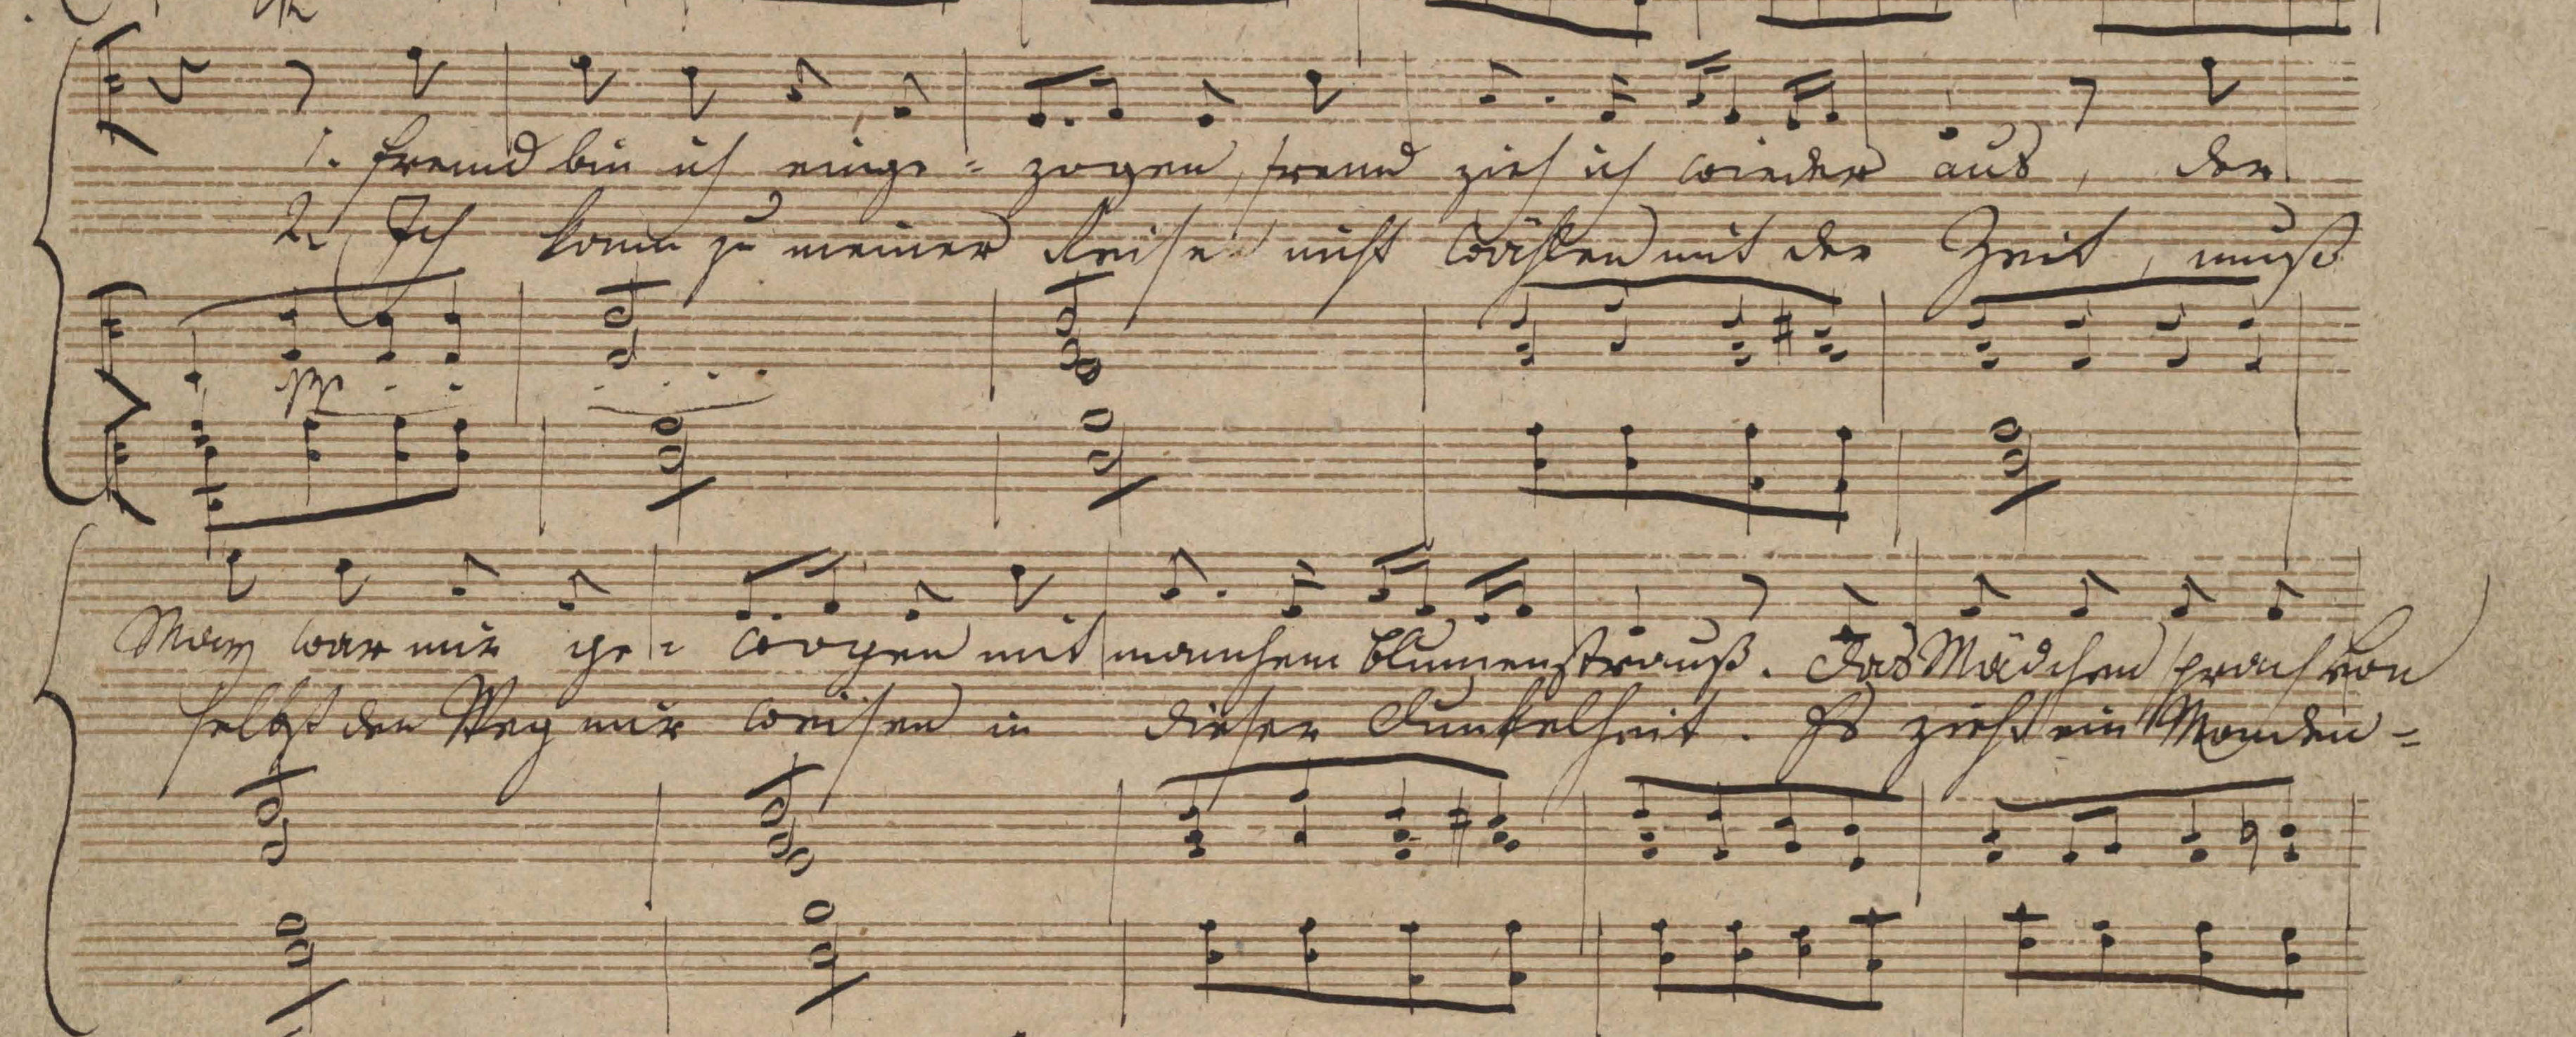 1. Fremd bin ich einge = zogen, fremd zieh ich wieder aus, der
2. Ich kann zu meiner Reise nicht wählen mit der Zeit, muß
pp
May war mir ge = wogen mit manchem Blumenstrauß. Das Mädchen sprach von
selbst den Weg mir weisen in dieser Dunkelheit. Es zieht ein Monden =